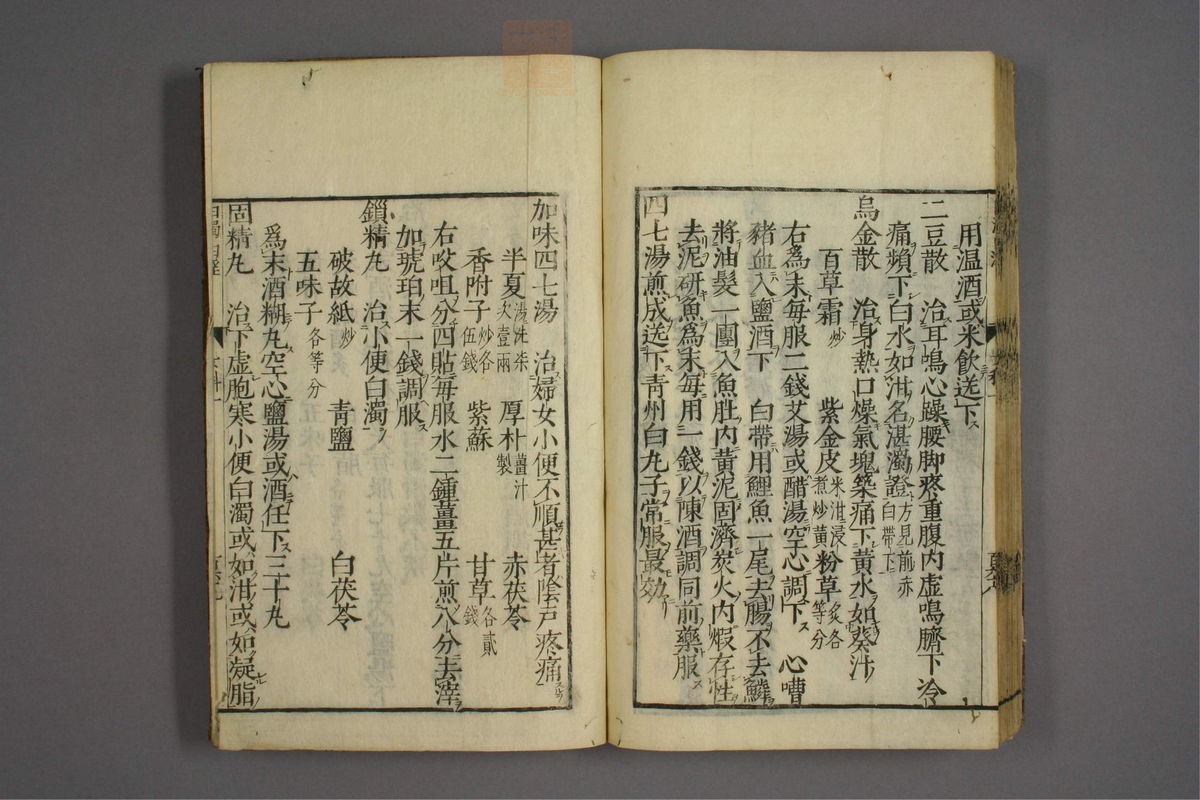 用温酒或米飲送下
二豆散 治耳鳴心躁腰脚疼重腹内虚鳴臍下冷
痛頻下白水如泔名湛濁證方見前赤白帶下
烏金散 治身熱口燥氣塊築痛下黄水如葵汁
百草霜炒 紫金皮米泔浸煮炒黄 粉草炙各等分
右爲末毎服二錢艾湯或醋湯空心調下 心嘈
豬血入鹽酒下 白帶用鯉魚一尾去腸不去鱗
將油髮一團入魚肚内黄泥固濟炭火内煆存性
去泥研魚爲末毎用一錢以陳酒調同前藥服
四七湯煎成送下靑州白丸子常服最効
加味四七湯 治婦女小便不順甚者陰戸疼痛
半夏湯洗柒次壹兩 厚朴薑汁製 赤茯苓
香附子炒各伍錢 紫蘇 甘草各貳錢
右㕮咀分四貼毎服水二鍾薑五片煎八分去滓
加琥珀末一錢調服
鎻精丸 治小便白濁
破故紙炒 靑鹽 白茯苓
五味子各等分
爲末酒糊丸空心鹽湯或酒任下三十丸
固精丸 治下虚胞寒小便白濁或如泔或如凝脂